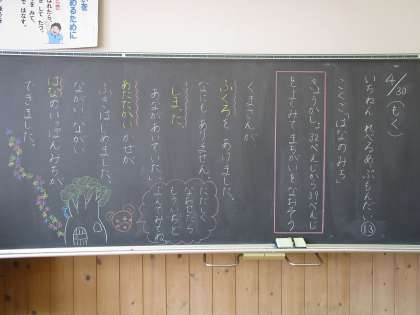 4/30(もく)
いちねん れべるあっぷもんだい⑬
こくご「はなのみち」
きょうかしょ32ぺえじから39ぺえじ
をよんで、まちがいをなおそう
くまさんが、
ふくろを あけました。
なにも ありません。
しました。
あながあいていた。
あたたかい かぜが、
ふきはじめました。
ながい ながい
はなの いっぽんみちが、
できました。
ただしく
なおせたら
もういちど
よんでみてね